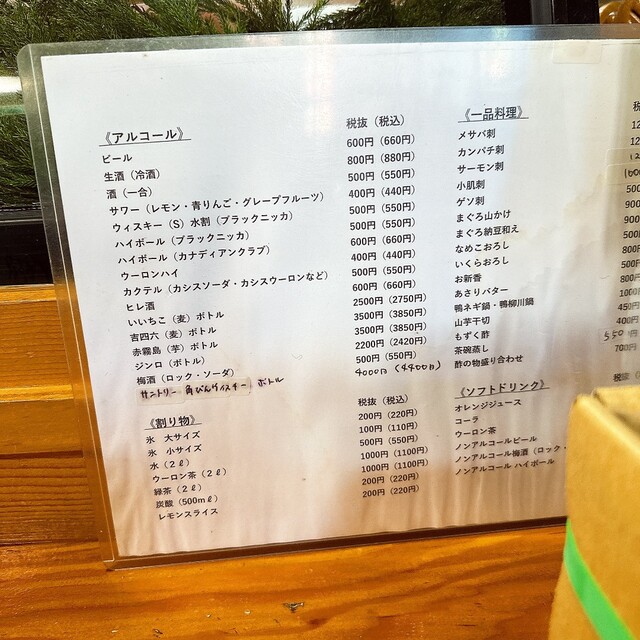 《アルコール》 税抜（税込）
ビール 600円（660円）
生酒（冷酒） 800円（880円）
酒（一合） 500円（550円）
サワー（レモン・青りんご・グレープフルーツ） 400円（440円）
ウィスキー（S）水割（ブラックニッカ） 500円（550円）
ハイボール（ブラックニッカ） 500円（550円）
ハイボール（カナディアンクラブ） 600円（660円）
ウーロンハイ 400円（440円）
カクテル（カシスソーダ・カシスウーロンなど） 500円（550円）
ヒレ酒 600円（660円）
いいちこ（麦）ボトル 2500円（2750円）
吉四六（麦）ボトル 3500円（3850円）
赤霧島（芋）ボトル 3500円（3850円）
ジンロ（ボトル） 2200円（2420円）
梅酒（ロック・ソーダ） 500円（550円）
サントリー 角びんウイスキー ボトル 4000円（4400円）
《割り物》 税抜（税込）
氷　大サイズ 200円（220円）
氷　小サイズ 100円（110円）
水（2ℓ） 500円（550円）
ウーロン茶（2ℓ） 1000円（1100円）
緑茶（2ℓ） 1000円（1100円）
炭酸（500mℓ） 200円（220円）
レモンスライス 200円（220円）
《一品料理》
メサバ刺
カンパチ刺
サーモン刺
小肌刺
ゲソ刺
まぐろ山かけ
まぐろ納豆和え
なめこおろし
いくらおろし
お新香
あさりバター
鴨ネギ鍋・鴨柳川鍋
山芋千切
もずく酢
茶碗蒸し
酢の物盛り合わせ
《ソフトドリンク》
オレンジジュース
コーラ
ウーロン茶
ノンアルコールビール
ノンアルコール梅酒（ロック・
ノンアルコール ハイボール